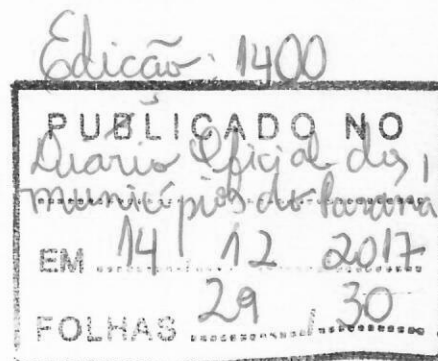 Edicão: 1400
PUBLICADO NO
Diario Oficial dos
municípios do Paraná
EM 14 12 2017
FOLHAS 29 / 30